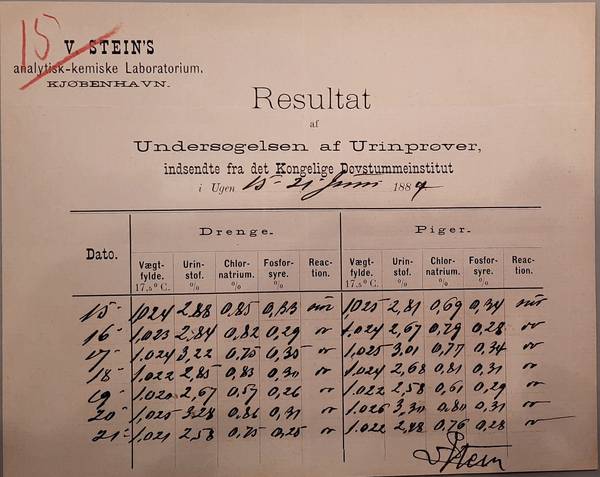 15
V. STEIN'S
analytisk-kemiske Laboratorium,
KJØBENHAVN.
Resultat
af
Undersøgelsen af Urinprøver,
indsendte fra det Kongelige Døvstummeinstitut
i Ugen 15-21 Juni 188
Dato. Drenge. Piger.
Vægtfylde. 17,5° C. Urinstof. % Chlornatrium. % Fosforsyre. % Reaction. Vægtfylde. 17,5° C. Urinstof. % Chlornatrium. % Fosforsyre. % Reaction.
15 1,024 2,88 0,85 0,33 sur 1,025 2,81 0,69 0,34 sur
16 1,023 2,84 0,82 0,29 1,024 2,67 0,79 0,28
17 1,024 3,22 0,75 0,35 1,025 3,01 0,77 0,34
18 1,022 2,85 0,83 0,30 1,024 2,68 0,81 0,31
19 1,020 2,67 0,57 0,26 1,022 2,58 0,61 0,29
20 1,025 3,28 0,86 0,31 1,026 3,30 0,80 0,31
21 1,021 2,58 0,75 0,25 1,022 2,48 0,76 0,28
V Stein